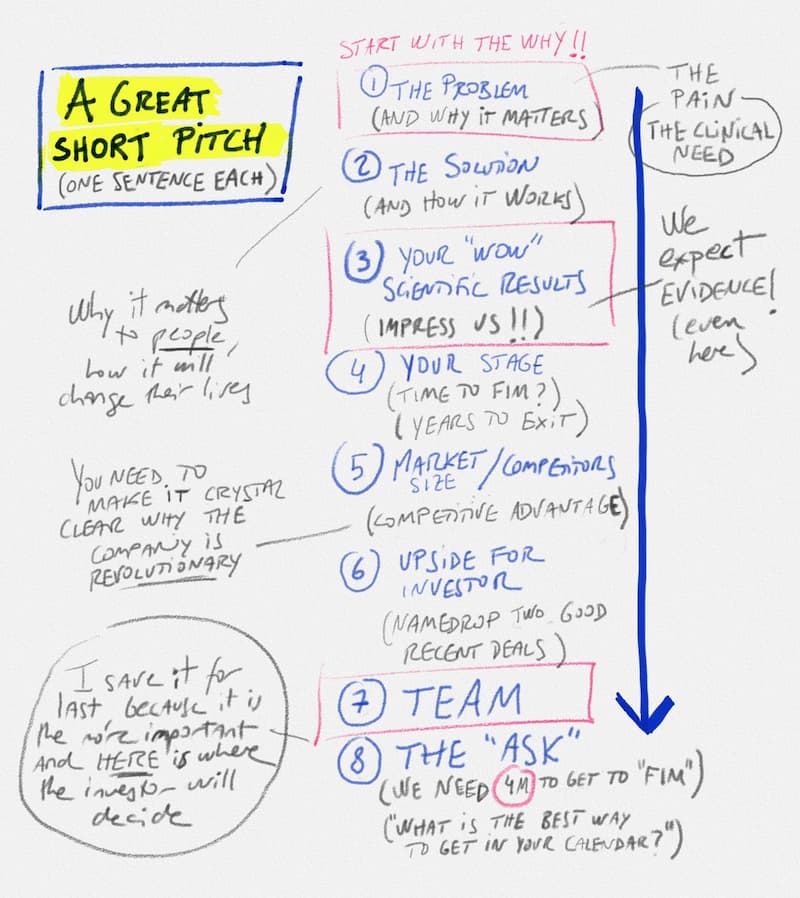 START WITH THE WHY!!
A GREAT
SHORT PITCH
(ONE SENTENCE EACH)
1 THE PROBLEM
(AND WHY IT MATTERS)
THE
PAIN
THE CLINICAL
NEED
2 THE SOLUTION
(AND HOW IT WORKS)
Why it matters
to people,
how it will
change their lives
3 YOUR "WOW"
SCIENTIFIC RESULTS
(IMPRESS US!!)
We
expect
EVIDENCE!
(even
here)
4 YOUR STAGE
(TIME TO FIM?)
(YEARS TO EXIT)
5 MARKET/COMPETITORS
SIZE
(COMPETITIVE ADVANTAGE)
YOU NEED TO
MAKE IT CRYSTAL
CLEAR WHY THE
COMPANY IS
REVOLUTIONARY
6 UPSIDE FOR
INVESTOR
(NAMEDROP TWO GOOD
RECENT DEALS)
7 TEAM
I SAVE it for
last because it is
the more important
AND HERE is where
the investor will
decide
8 THE "ASK"
(WE NEED 4M TO GET TO "FIM")
("WHAT IS THE BEST WAY
TO GET IN YOUR CALENDAR?")